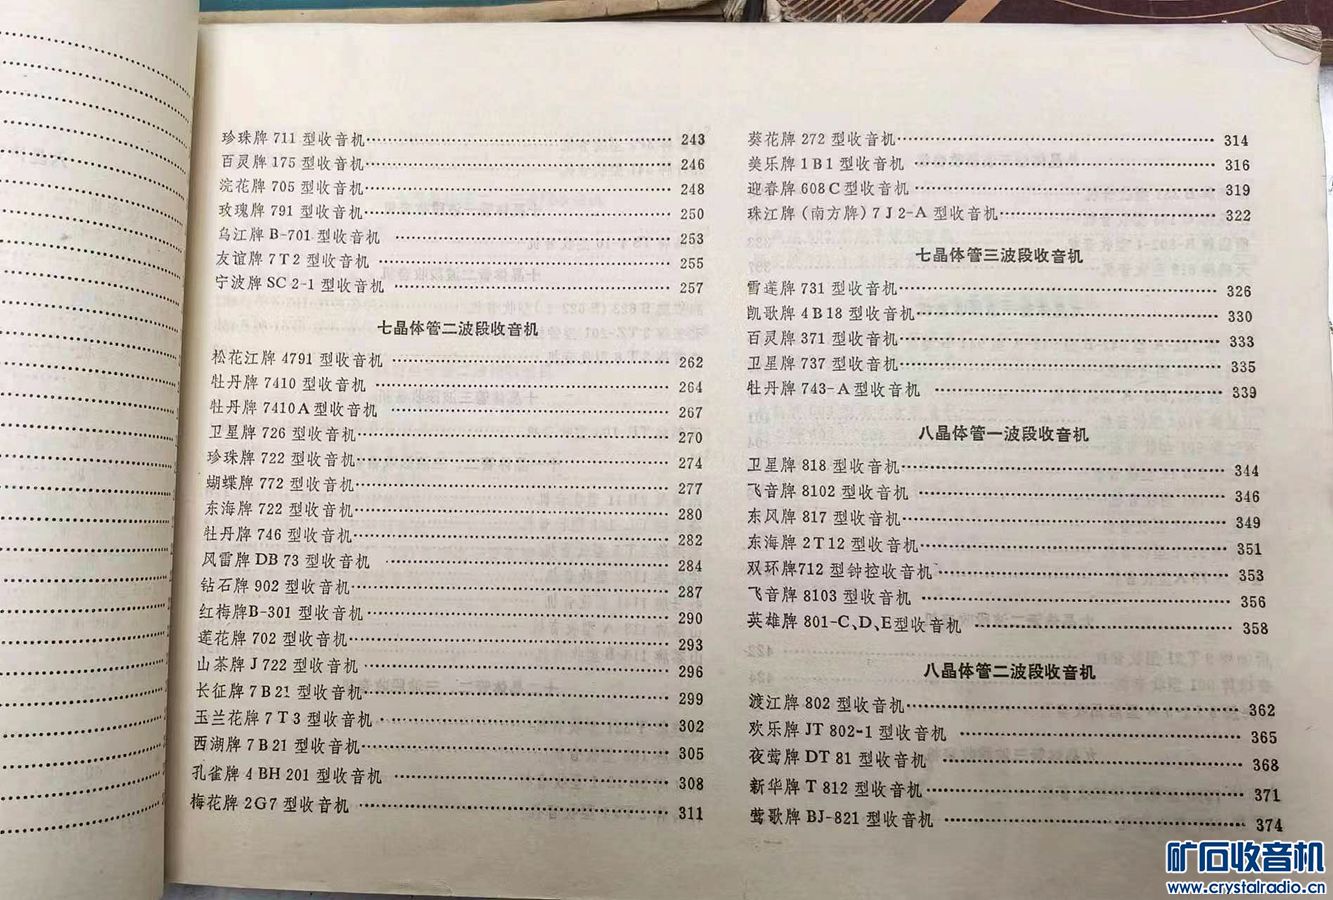 珍珠牌 711 型收音机…………243
百灵牌 175 型收音机…………246
浣花牌 705 型收音机…………248
玫瑰牌 791 型收音机…………250
乌江牌 B-701 型收音机…………253
友谊牌 7T2 型收音机…………255
宁波牌 SC2-1 型收音机…………257
七晶体管二波段收音机
松花江牌 4791 型收音机…………262
牡丹牌 7410 型收音机…………264
牡丹牌 7410A 型收音机…………267
卫星牌 726 型收音机…………270
珍珠牌 722 型收音机…………274
蝴蝶牌 772 型收音机…………277
东海牌 722 型收音机…………280
牡丹牌 746 型收音机…………282
风雷牌 DB73 型收音机…………284
钻石牌 902 型收音机…………287
红梅牌 B-301 型收音机…………290
莲花牌 702 型收音机…………293
山茶牌 J722 型收音机…………296
长征牌 7B21 型收音机…………299
玉兰花牌 7T3 型收音机…………302
西湖牌 7B21 型收音机…………305
孔雀牌 4BH201 型收音机…………308
梅花牌 2G7 型收音机…………311
葵花牌 272 型收音机…………314
美乐牌 1B1 型收音机…………316
迎春牌 608C 型收音机…………319
珠江牌(南方牌)7J2-A 型收音机…………322
七晶体管三波段收音机
雪莲牌 731 型收音机…………326
凯歌牌 4B18 型收音机…………330
百灵牌 371 型收音机…………333
卫星牌 737 型收音机…………335
牡丹牌 743-A 型收音机…………339
八晶体管一波段收音机
卫星牌 818 型收音机…………344
飞音牌 8102 型收音机…………346
东风牌 817 型收音机…………349
东海牌 2T12 型收音机…………351
双环牌 712 型钟控收音机…………353
飞音牌 8103 型收音机…………356
英雄牌 801-C、D、E型收音机…………358
八晶体管二波段收音机
渡江牌 802 型收音机…………362
欢乐牌 JT802-1 型收音机…………365
夜莺牌 DT81 型收音机…………368
新华牌 T812 型收音机…………371
莺歌牌 BJ-821 型收音机…………374
矿石收音机
www.crystalradio.cn